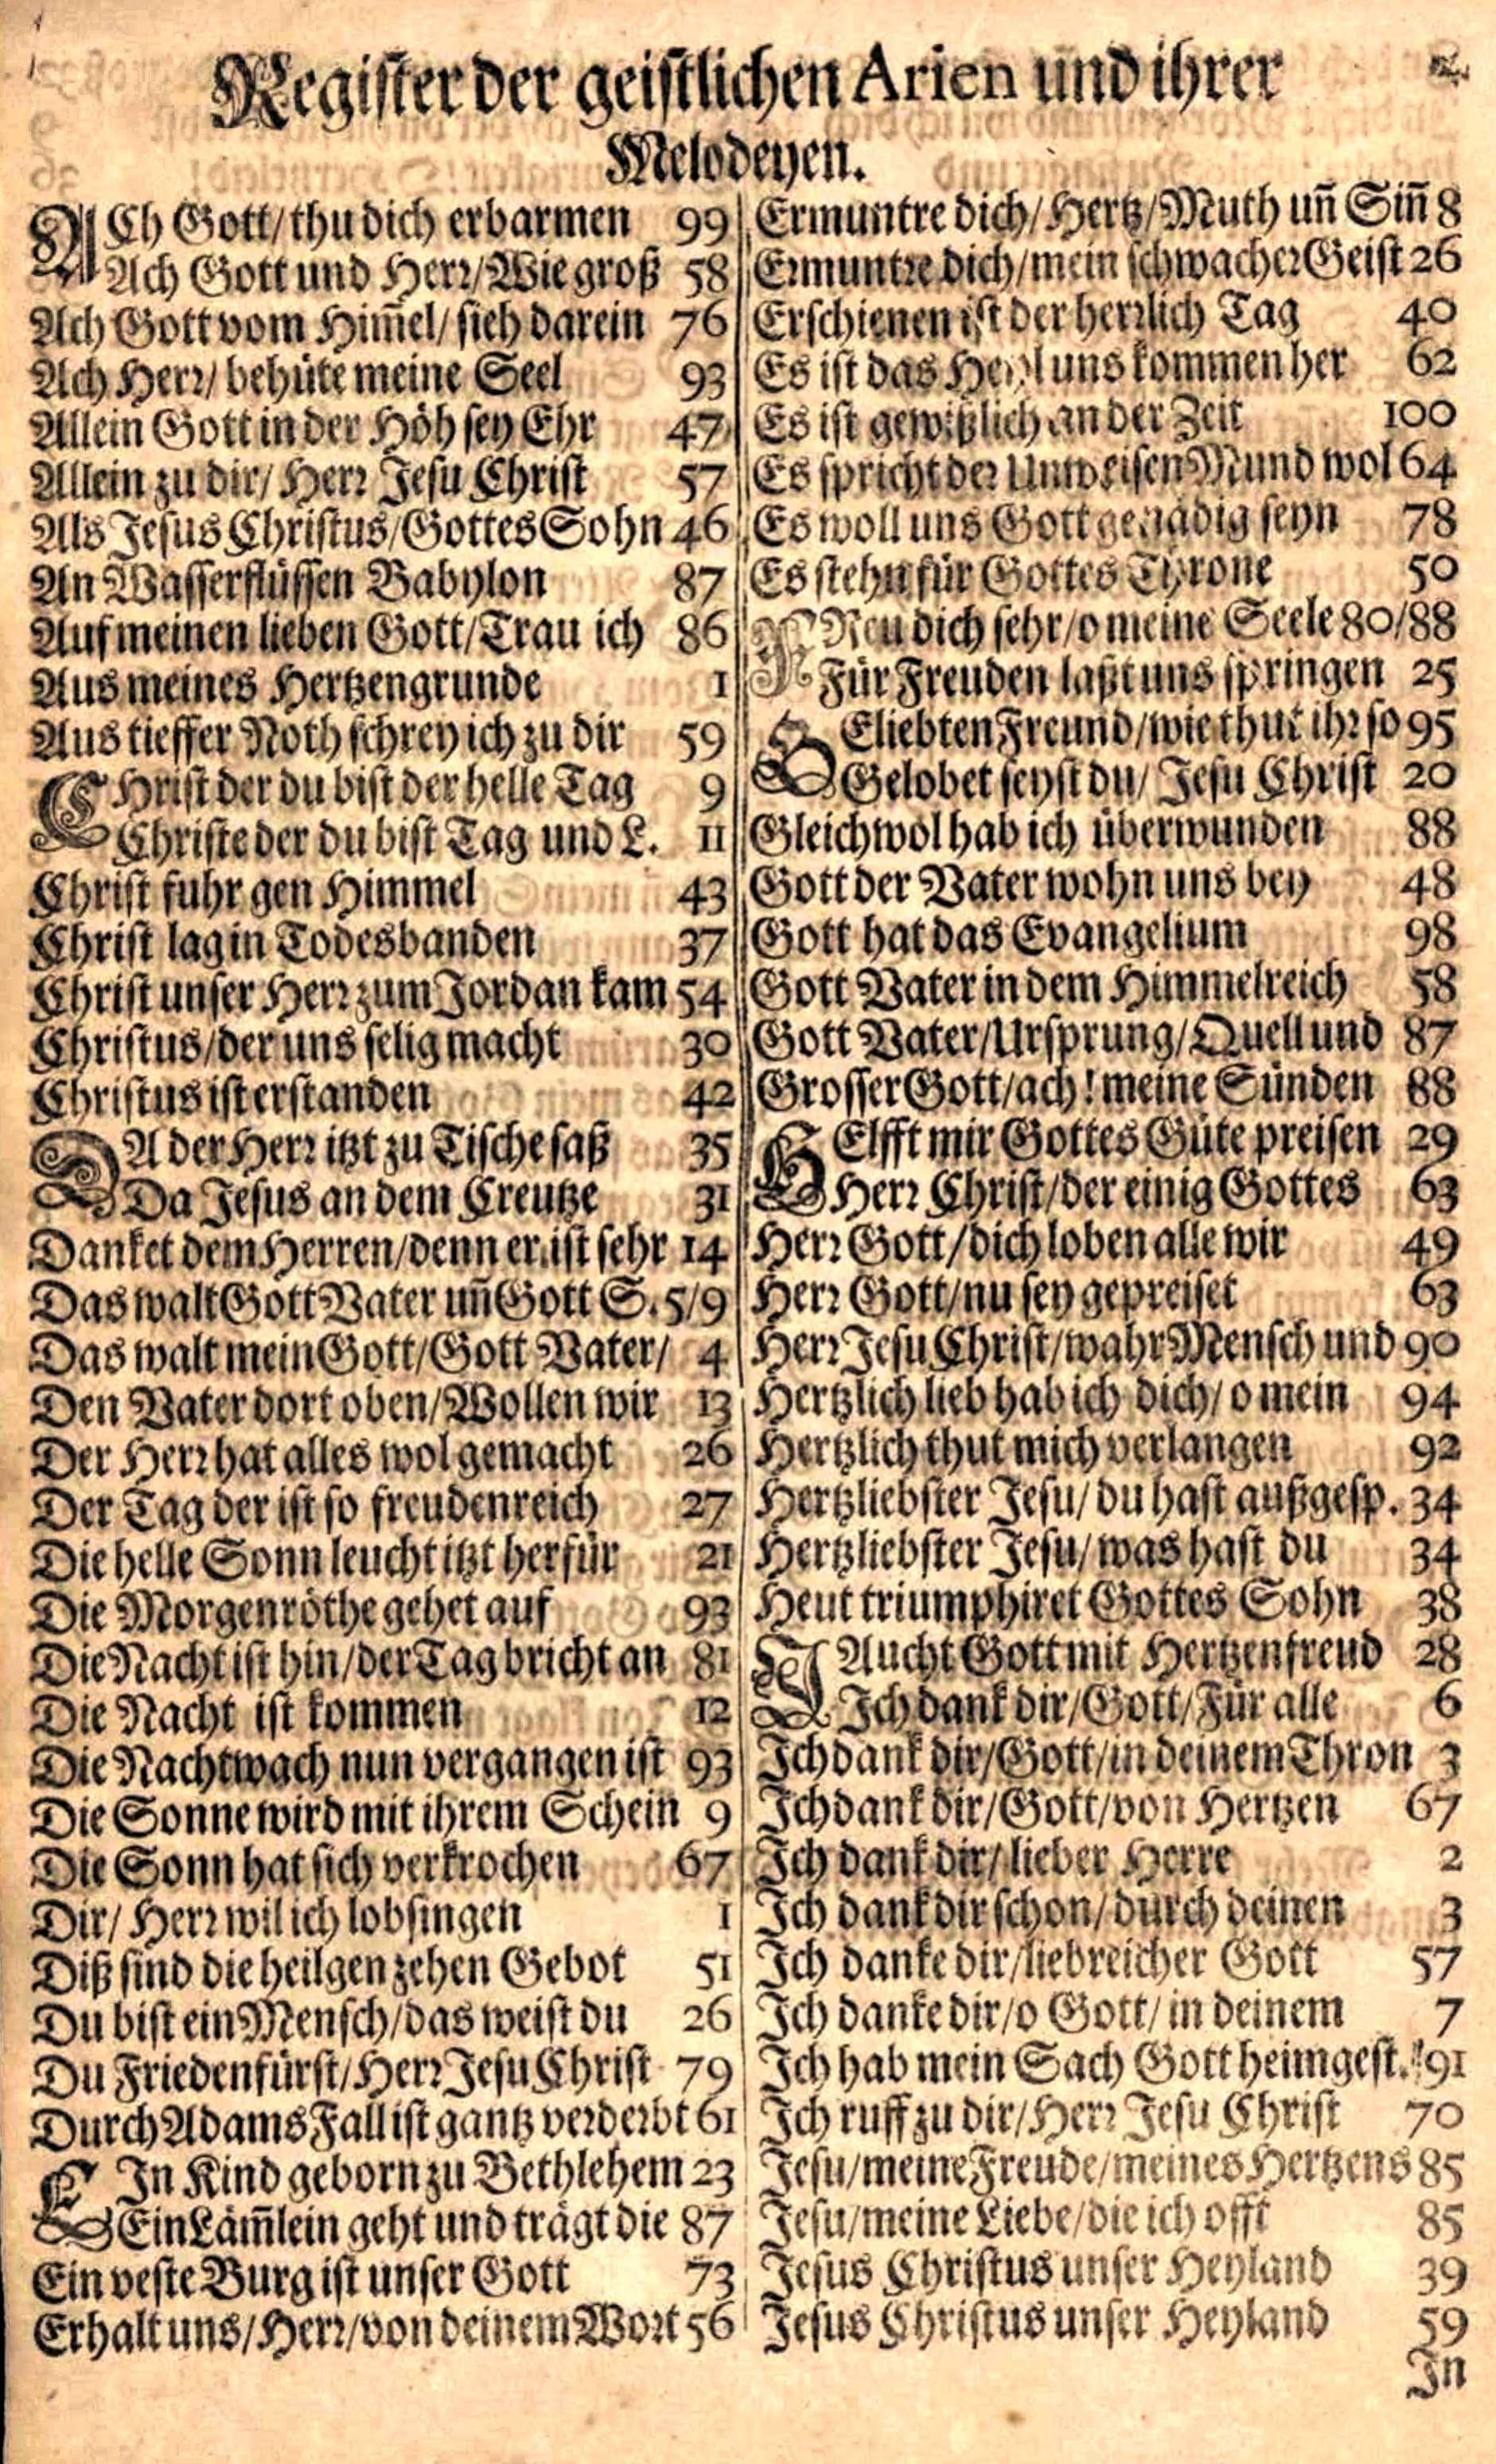 Register der geistlichen Arien und ihrer
Melodeyen.
ACh Gott/thu dich erbarmen 99
Ach Gott und Herr/Wie groß 58
Ach Gott vom Him̄el/sieh darein 76
Ach Herr/behüte meine Seel 93
Allein Gott in der Höh sey Ehr 47
Allein zu dir/Herr Jesu Christ 57
Als Jesus Christus/Gottes Sohn 46
An Wasserflüssen Babylon 87
Auf meinen lieben Gott/Trau ich 86
Aus meines Hertzengrunde 1
Aus tieffer Noth schrey ich zu dir 59
CHrist der du bist der helle Tag 9
Christe der du bist Tag und L. 11
Christ fuhr gen Himmel 43
Christ lag in Todesbanden 37
Christ unser Herr zum Jordan kam 54
Christus/der uns selig macht 30
Christus ist erstanden 42
DA der Herr itzt zu Tische saß 35
Da Jesus an dem Creutze 31
Danket dem Herren/denn er ist sehr 14
Das walt Gott Vater un̄ Gott S. 5/9
Das walt mein Gott/Gott Vater/ 4
Den Vater dort oben/Wollen wir 13
Der Herr hat alles wol gemacht 26
Der Tag der ist so freudenreich 27
Die helle Sonn leucht itzt herfür 21
Die Morgenröthe gehet auf 93
Die Nacht ist hin/der Tag bricht an 81
Die Nacht ist kommen 12
Die Nachtwach nun vergangen ist 93
Die Sonne wird mit ihrem Schein 9
Die Sonn hat sich verkrochen 67
Dir/Herr wil ich lobsingen 1
Diß sind die heilgen zehen Gebot 51
Du bist ein Mensch/das weist du 26
Du Friedenfürst/Herr Jesu Christ 79
Durch Adams Fall ist gantz verderbt 61
EIn Kind geborn zu Bethlehem 23
Ein Läm̄lein geht und trägt die 87
Ein veste Burg ist unser Gott 73
Erhalt uns/Herr/von deinem Wort 56
Ermuntre dich/Hertz/Muth un̄ Sin̄ 8
Ermuntre dich/mein schwacher Geist 26
Erschienen ist der herrlich Tag 40
Es ist das Heyl uns kommen her 62
Es ist gewißlich an der Zeit 100
Es spricht der Unweisen Mund wol 64
Es woll uns Gott genädig seyn 78
Es stehn für Gottes Throne 50
FReu dich sehr/o meine Seele 80/88
Für Freuden laßt uns springen 25
GEliebten Freund/wie thut ihr so 95
Gelobet seyst du/Jesu Christ 20
Gleichwol hab ich überwunden 88
Gott der Vater wohn uns bey 48
Gott hat das Evangelium 98
Gott Vater in dem Himmelreich 58
Gott Vater/Ursprung/Quell und 87
Grosser Gott/ach! meine Sünden 88
HElfft mir Gottes Güte preisen 29
Herr Christ/der einig Gottes 63
Herr Gott/dich loben alle wir 49
Herr Gott/nu sey gepreiset 63
Herr Jesu Christ/wahr Mensch und 90
Hertzlich lieb hab ich dich/o mein 94
Hertzlich thut mich verlangen 92
Hertzliebster Jesu/du hast außgesp. 34
Hertzliebster Jesu/was hast du 34
Heut triumphiret Gottes Sohn 38
JAucht Gott mit Hertzenfreud 28
Ich dank dir/Gott/Für alle 6
Ich dank dir/Gott/in deinem Thron 3
Ich dank dir/Gott/von Hertzen 67
Ich dank dir/lieber Herre 2
Ich dank dir schon/durch deinen 3
Ich danke dir/liebreicher Gott 57
Ich danke dir/o Gott/in deinem 7
Ich hab mein Sach Gott heimgest. 91
Ich ruff zu dir/Herr Jesu Christ 70
Jesu/meine Freude/meines Hertzens 85
Jesu/meine Liebe/die ich offt 85
Jesus Christus unser Heyland 39
Jesus Christus unser Heyland 59
In